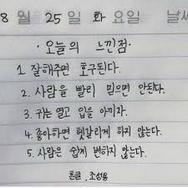 8 월 25 일 화 요일 날씨
· 오늘의 느낀점 ·
1 잘해주면 호구된다.
2. 사람을 빨리 믿으면 안된다.
3. 귀는 열고 입을 아끼자.
4. 좋아하면 헷갈리게 하지 않는다.
5. 사람은 쉽게 변하지 않는다.
조성용